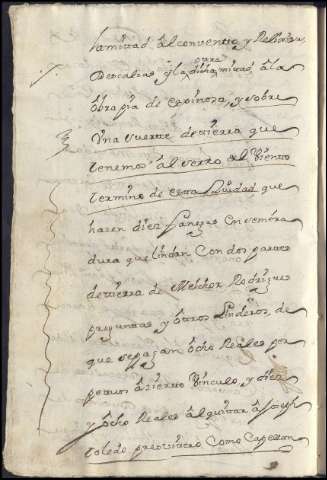 la mitad al convento y Relixiosas
Descalsas y la otra dicha mitad a la
obra pia de espinosa, y sobre
Una suerte de tierra que
tenemos al serro del Viento
termino de esta Ciudad que
hasen diez fanegas en sembra
dura que lindan con dos partes
de tierra de Melchor Rodrigues
y otros Linderos de
que se pagan ocho Reales per
petuos a sierto Vinculo, y diez
y ocho Reales al quitar a Joseph
toledo presvitero como Capellan